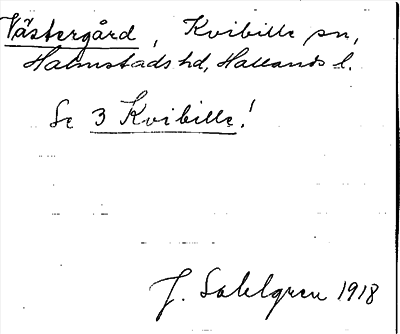 Västergård, Kvibille sn,
Halmstads hd, Hallands l.
Se 3 Kvibille!
J. Sahlgren 1918